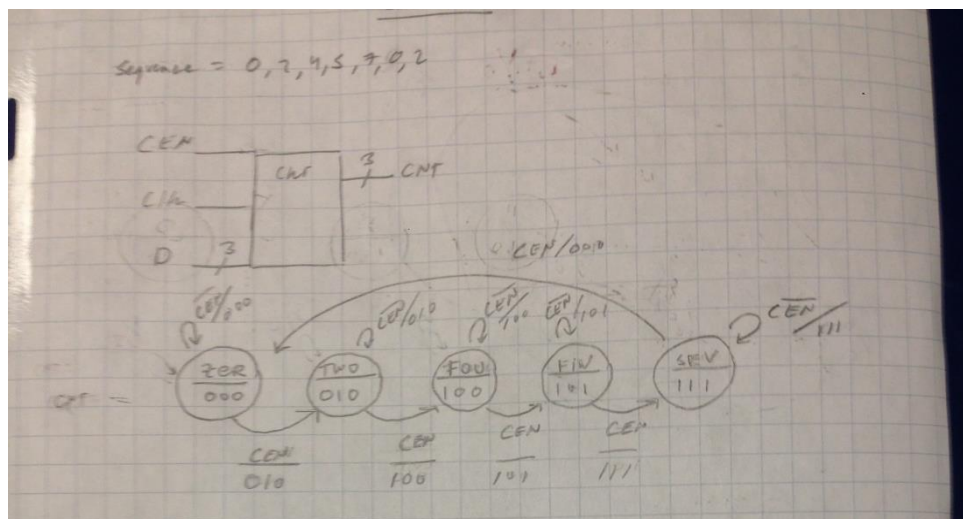 Sequence = 0, 2, 4, 5, 7, 0, 2
CEN
CNT
3
CNT
Clk
D
3
CEN/0010
C̅E̅N̅/000
C̅E̅N̅/010
C̅E̅N̅/100
C̅E̅N̅/101
C̅E̅N̅/111
CNT =
ZER
000
TWO
010
FOU
100
FIV
101
SEV
111
CEN
010
CEN
100
CEN
101
CEN
111